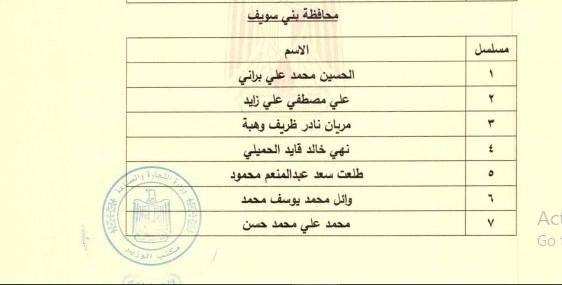 محافظة بني سويف
مسلسل الاسم
١ الحسين محمد علي براني
٢ علي مصطفي علي زايد
٣ مريان نادر ظريف وهبة
٤ نهي خالد قايد الحميلي
٥ طلعت سعد عبدالمنعم محمود
٦ وائل محمد يوسف محمد
٧ محمد علي محمد حسن
وزارة التجارة والصناعة
مكتب الوزير
Act
Go t